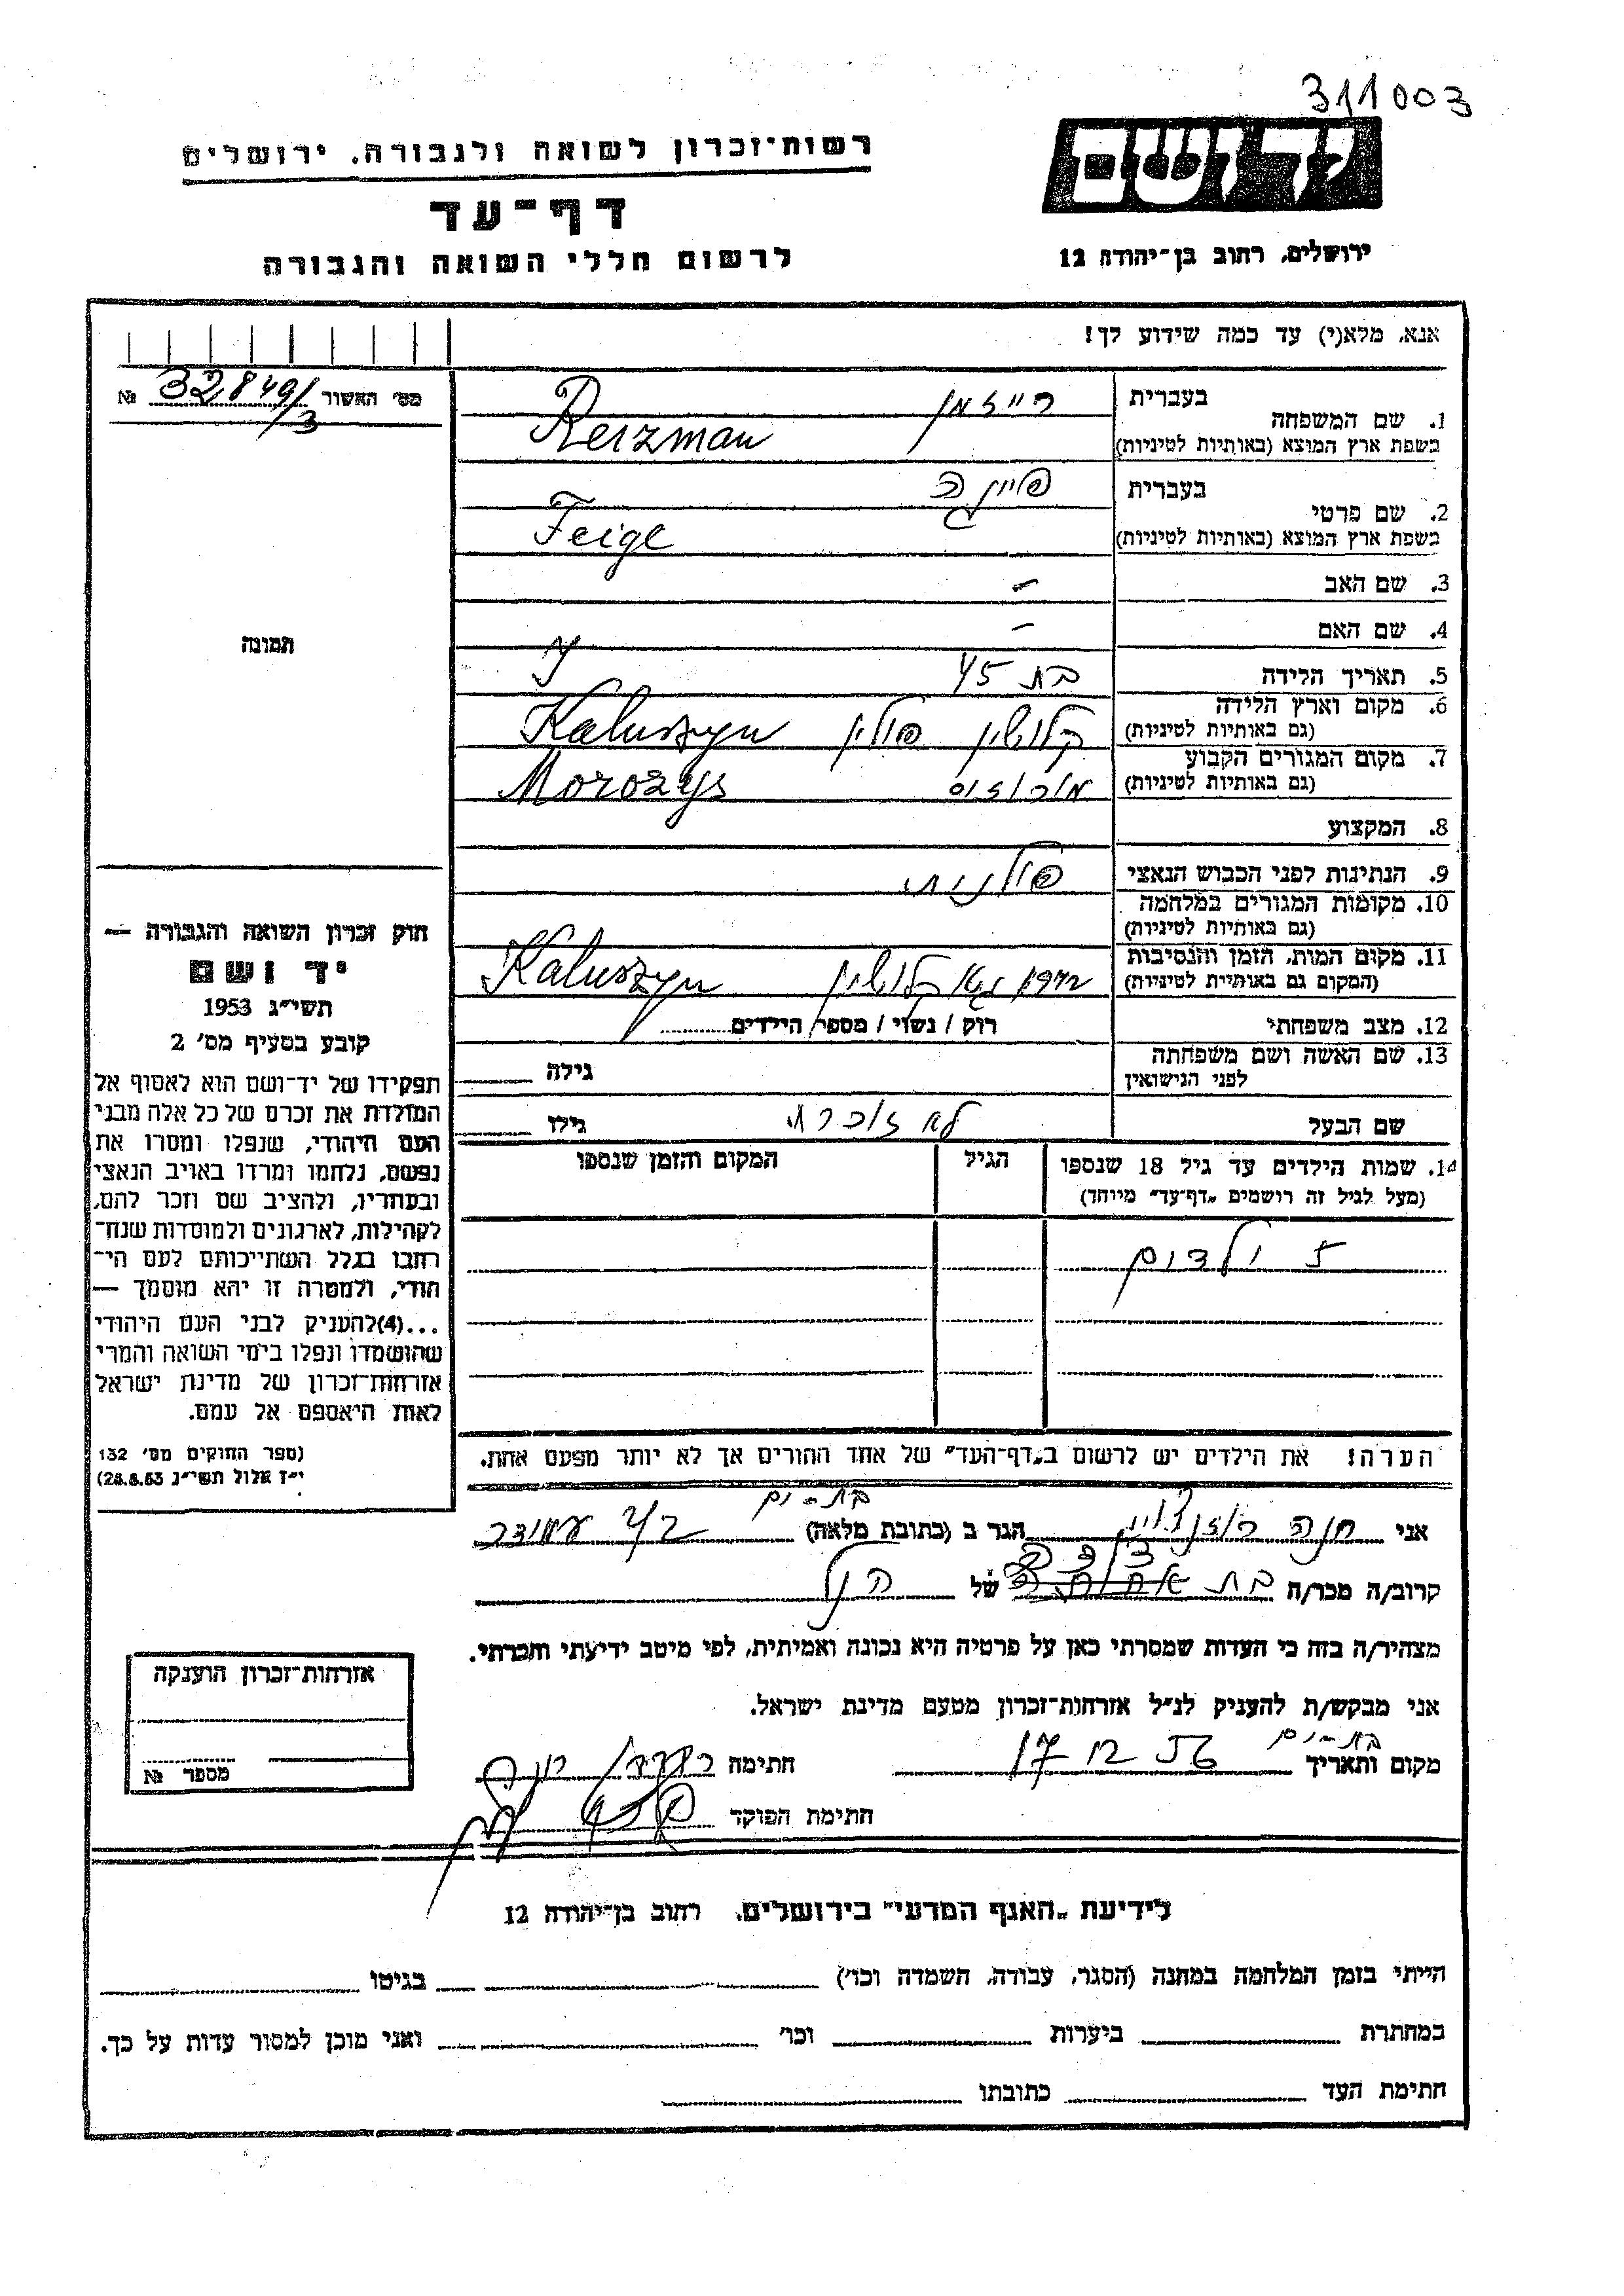 311003
יד ושם
רשות-זכרון לשואה ולגבורה, ירושלים
דף-עד
ירושלים, רחוב בן-יהודה 12
לרשום חללי השואה והגבורה
אנא, מלא(י) עד כמה שידוע לך!
מס׳ האשור 32,849/3 №
1. שם המשפחה
בעברית רייזמן
בשפת ארץ המוצא (באותיות לטיניות) Reizman
2. שם פרטי
בעברית פייגה
בשפת ארץ המוצא (באותיות לטיניות) Feige
3. שם האב -
4. שם האם -
5. תאריך הלידה בת 45
6. מקום וארץ הלידה
(גם באותיות לטיניות) קלושין פולין Kaluszyn
7. מקום המגורים הקבוע
(גם באותיות לטיניות) Morozys
8. המקצוע
9. הנתינות לפני הכבוש הנאצי פולנית
10. מקומות המגורים במלחמה
(גם באותיות לטיניות)
11. מקום המות, הזמן והנסיבות
(המקום גם באותיות לטיניות) 1942 קלושין Kaluszyn
12. מצב משפחתי רוק / נשוי / מספר הילדים
13. שם האשה ושם משפחתה
לפני הנישואין גילה
שם הבעל לא זוכרת גילו
14. שמות הילדים עד גיל 18 שנספו הגיל המקום והזמן שנספו
(מעל לגיל זה רושמים „דף-עד״ מיוחד)
5 ילדים
הערה! את הילדים יש לרשום ב„דף-העד״ של אחד ההורים אך לא יותר מפעם אחת.
תמונה
חוק זכרון השואה והגבורה —
יד ושם
תשי״ג 1953
קובע בסעיף מס׳ 2
תפקידו של יד-ושם הוא לאסוף אל
המולדת את זכרם של כל אלה מבני
העם היהודי, שנפלו ומסרו את
נפשם, נלחמו ומרדו באויב הנאצי
ובעוזריו, ולהציב שם וזכר להם,
לקהילות, לארגונים ולמוסדות שנח-
רחבו בגלל השתייכותם לעם הי-
הודי, ולמטרה זו יהא מוסמך —
...(4)להעניק לבני העם היהודי
שהושמדו ונפלו בימי השואה והמרי
אזרחות-זכרון של מדינת ישראל
לאות היאספם אל עמם.
(ספר החוקים מס׳ 132
י״ז אלול תשי״ג 28.8.53)
בת-ים
אני חנה הגר ב (כתובת מלאה)
קרוב/ה מכר/ה בת של הנ״ל
מצהיר/ה בזה כי העדות שמסרתי כאן על פרטיה היא נכונה ואמיתית, לפי מיטב ידיעתי והכרתי.
אני מבקש/ת להעניק לנ״ל אזרחות-זכרון מטעם מדינת ישראל.
מקום ותאריך בת-ים 17 12 56 חתימה
חתימת הפוקד
אזרחות-זכרון הוענקה
מספר №
לידיעת „האגף המדעי״ בירושלים, רחוב בן-יהודה 12
הייתי בזמן המלחמה במחנה (הסגר, עבודה, השמדה וכו׳) בגיטו
במחתרת ביערות וכו׳ ואני מוכן למסור עדות על כך.
חתימת העד כתובתו